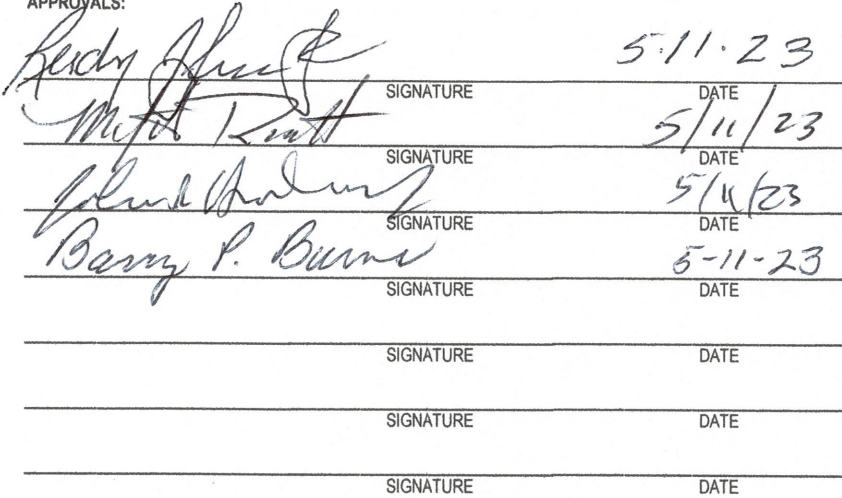 APPROVALS:
5.11.23
SIGNATURE DATE
5/11/23
SIGNATURE DATE
5/11/23
SIGNATURE DATE
Barry P. Burns 5-11-23
SIGNATURE DATE
SIGNATURE DATE
SIGNATURE DATE
SIGNATURE DATE